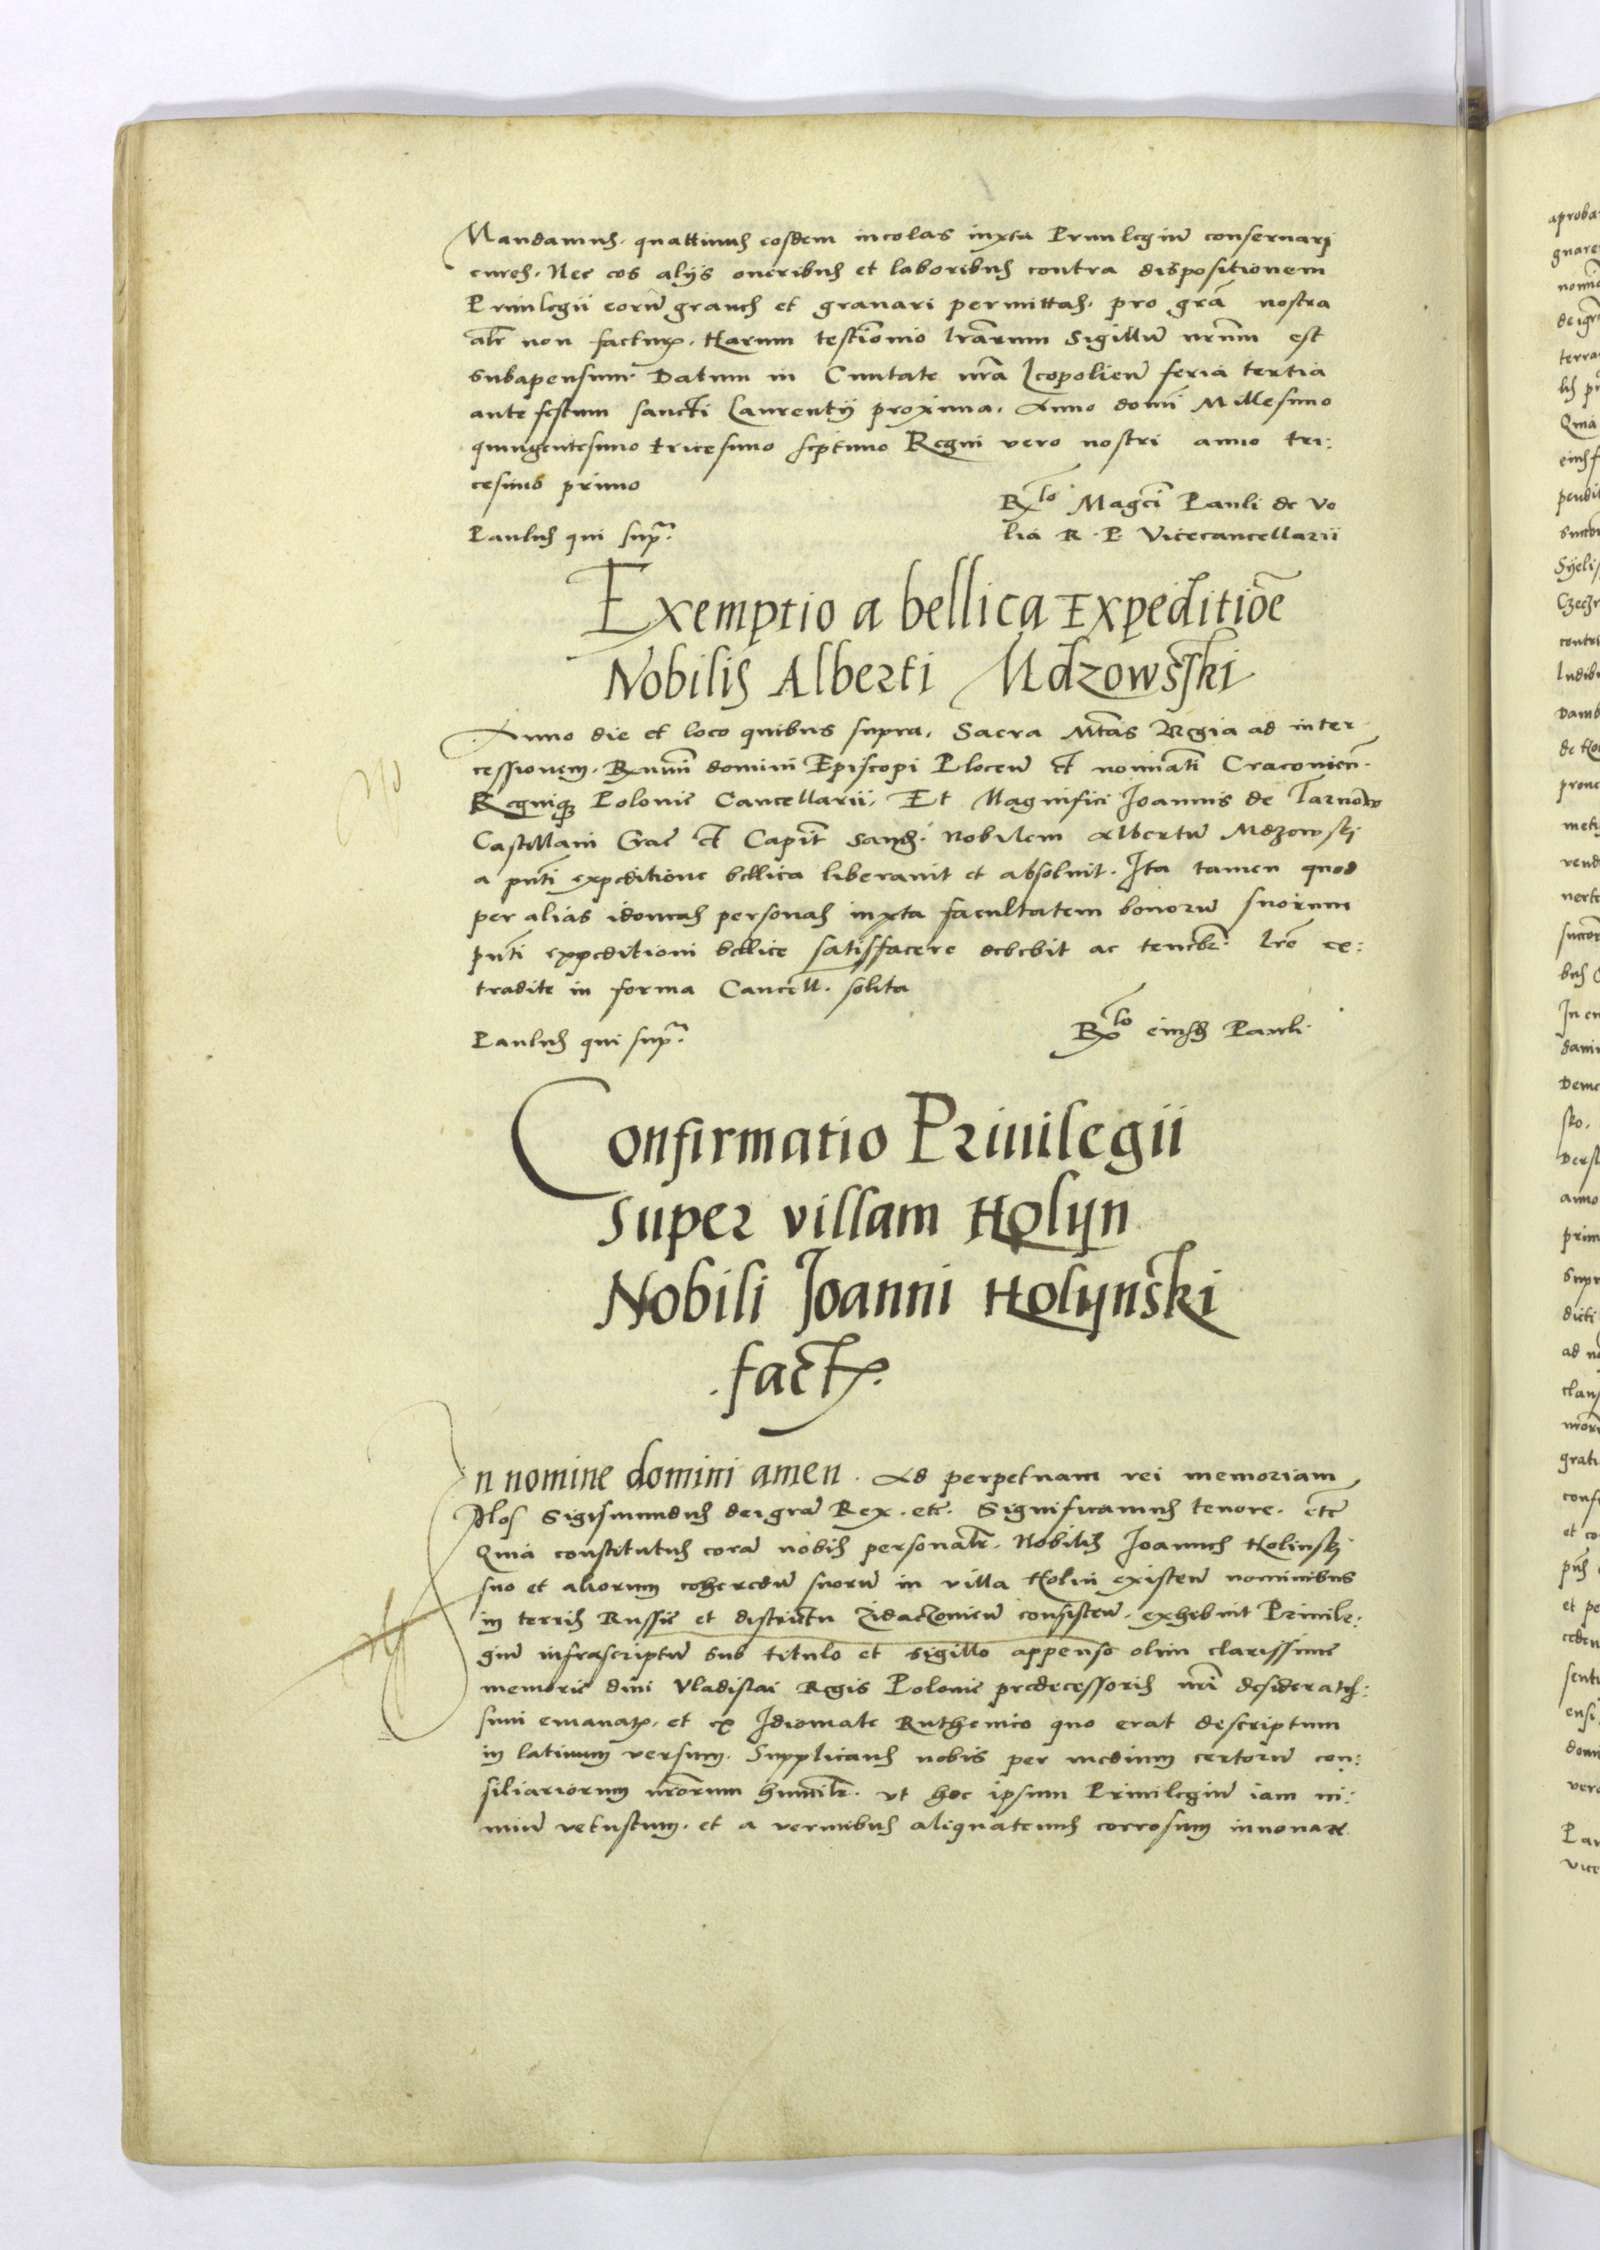 Mandamus. quattinus eosdem incolas iuxta Priuilegiū conseruari
cures. Nec eos alijs oneribus et laboribus contra dispositionem
Priuilegii eorū graues et grauari permittas. pro grā nostra
alr̄ non factur̨. Harum testīonio lrārum Sigillū nrūm est
subapensum. Datum in Ciuitate nrā Leopolien̄ feria tertia
ante festum sancti Laurentij proxima. Anno domī Millesimo
quingentesimo tricesimo septimo Regni vero nostri anno tri:
cesimo primo
Rlo Magcī Pauli de Vo
Paulus qui supr̄.
lia R. P. Vicecancellarii
Exemptio a bellica Expeditiōe
Nobilis Alberti Mdzowsski
Anno die et loco quibus supra. Sacra Mtās Regia ad inter
cessionem. Rnmī domini Episcopi Plocen̄ et nominati Craconien̄.
Regniq; Polonie Cancellarii. Et Magnifici Joannis de Tarnow
Castellani Crac̄ et Capit̄ Sand. Nobilem Albertū Mdzowski
a pn̄ti expeditione bellica liberauit et absoluit. Ita tamen quod
per alias idoneas personas iuxta facultatem bonorū suorum
pn̄ti expeditioni bellice satisfacere debebit ac tenebr̄. Lrē ex:
tradite in forma Cancell. solita
Paulus qui supr̄.
Rlo eiusd Pauli.
Confirmatio Priuilegii
Super villam Holyn
Nobili Joanni Holynski
. fact̨.
In nomine domini amen. Ad perpetuam rei memoriam
Nos Sigismundus dei grā Rex. etc̄. Significamus tenore. etc̄
Quia constitutus corā nobis personalr̄. Nobilis Joannes Holinski
suo et aliorum coheredū suorū in villa Holin existen̄ nominibus
in terris Russie et districtu Zidaczouien̄ consisten̄. exhibuit Priuile:
giū infrascriptū sub titulo et sigillo appenso olim clarissime
memorie dini Vladislai Regis Polonie predecessoris nrī desideratis:
simi emanat̨. et ex Idiomate Ruthenico quo erat descriptum
in latinum versum. Supplicans nobis per medium certorū con:
siliariorum nrōrum humilr̄. vt hoc ipsum Priuilegiū iam ni:
miū vetustum. et a vermibus aliquatenus corrosum innouare